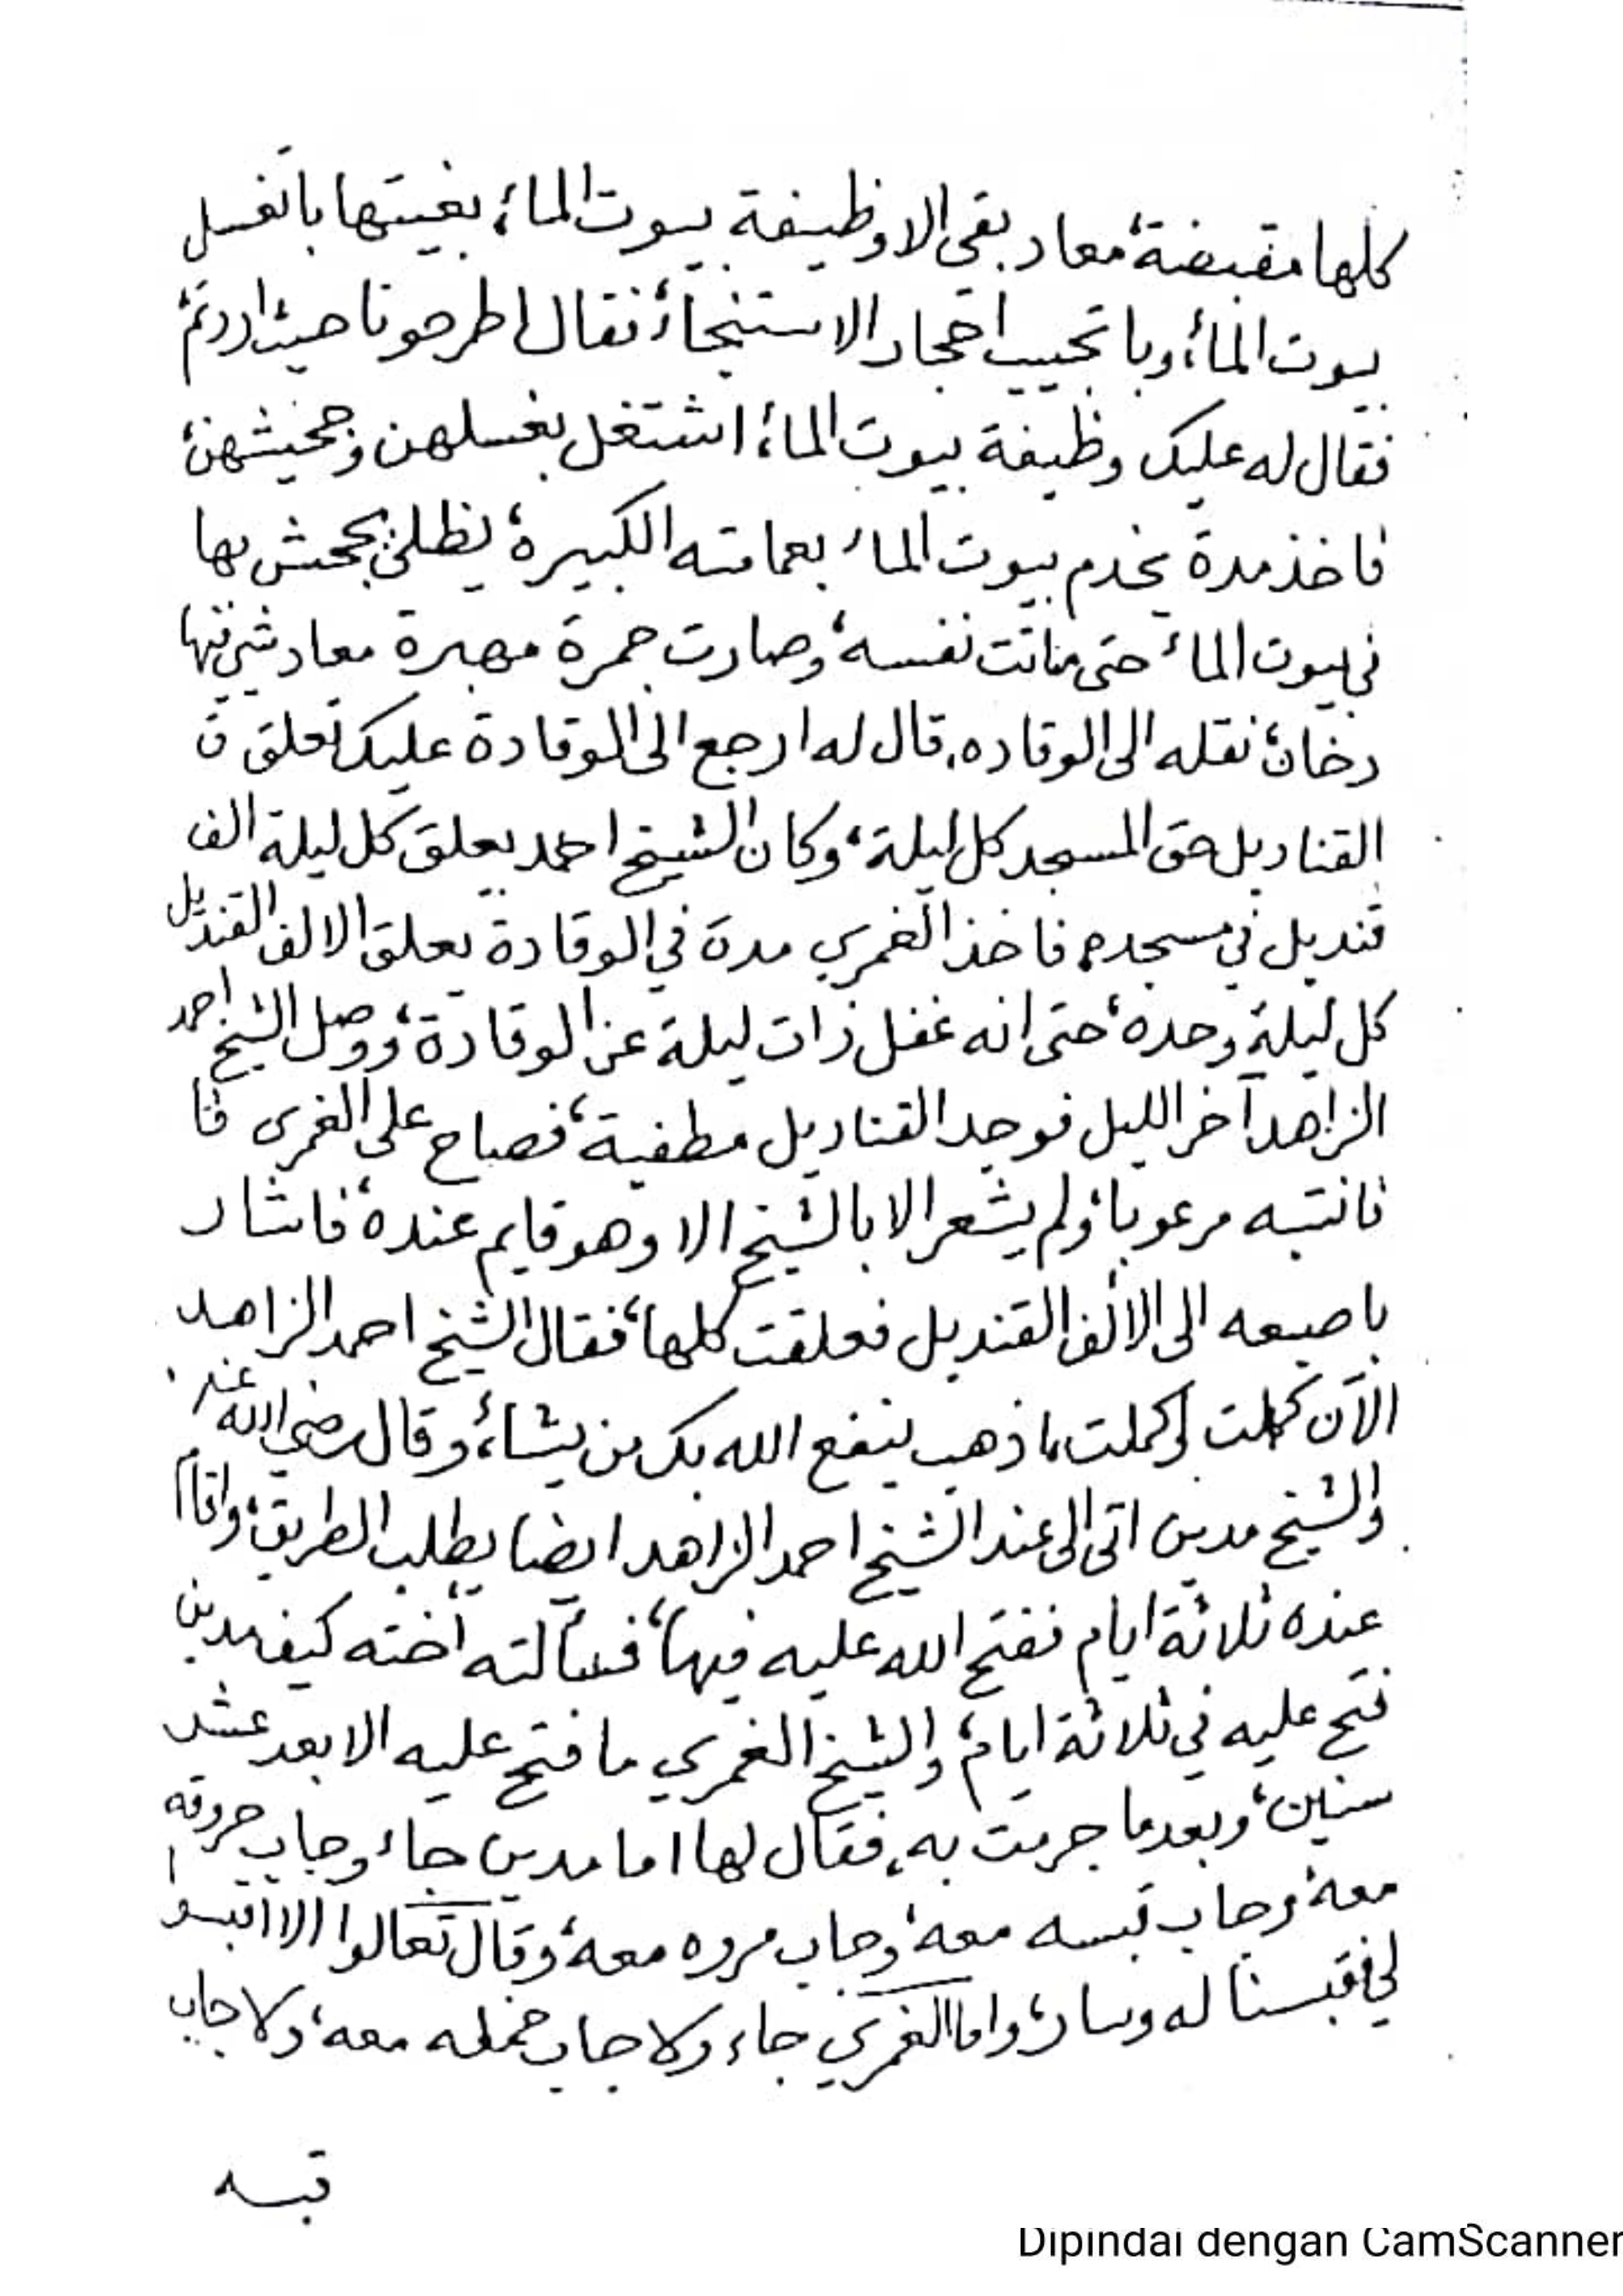 كلها مقبضة، معاد بقي الا وظيفة بيوت الماء، بغيتها باتغسل
بيوت الماء، وباتجيب احجار الاستنجاء، فقال اطرحونا حيث اردتم،
فقال له عليك وظيفة بيوت الماء، اشتغل بغسلهن وجحيشهن،
فاخذ مدة يخدم بيوت الماء بعمامته الكبيرة، يظل يجحش بها
في بيوت الماء حتى ماتت نفسه، وصارت جمرة مهبرة معاد شي فيها
دخان، نقله الى الوقاده، قال له ارجع الى الوقادة عليك تعلق ق
القناديل حق المسجد كل ليلة، وكان الشيخ احمد يعلق كل ليلة الف
قنديل في مسجده، فاخذ الغمري مدة في الوقادة يعلق الالف القنديل
كل ليلة وحده، حتى انه غفل ذات ليلة عن الوقادة، ووصل الشيخ احمد
الزاهد آخر الليل فوجد القناديل مطفية، فصاح على الغمري فا
فانتبه مرعوبا، ولم يشعر الا بالشيخ الا وهو قايم عنده، فاشار
باصبعه الى الالف القنديل فعلقت كلها، فقال الشيخ احمد الزاهد
الآن كملت كملت، اذهب ينفع الله بك من يشاء، وقال رضي الله عنه
والشيخ مدين اتى الى عند الشيخ احمد الزاهد ايضا يطلب الطريق، واقام
عنده ثلاثة ايام ففتح الله عليه فيها، فسألته أخته كيف مدين
فتح عليه في ثلاثة ايام، والشيخ الغمري ما فتح عليه الا بعد عشر
سنين، وبعدما جرت به، فقال لها اما مدين جاء وجاب حروقه
معه، وجاب قبسه معه، وجاب مروه معه، وقال تعالوا الا اقبسوا
لي، فقبسنا له وسار، واما الغمري جاء ولا جاب معه، ولا جاب
قبسه
Dipindai dengan CamScanner